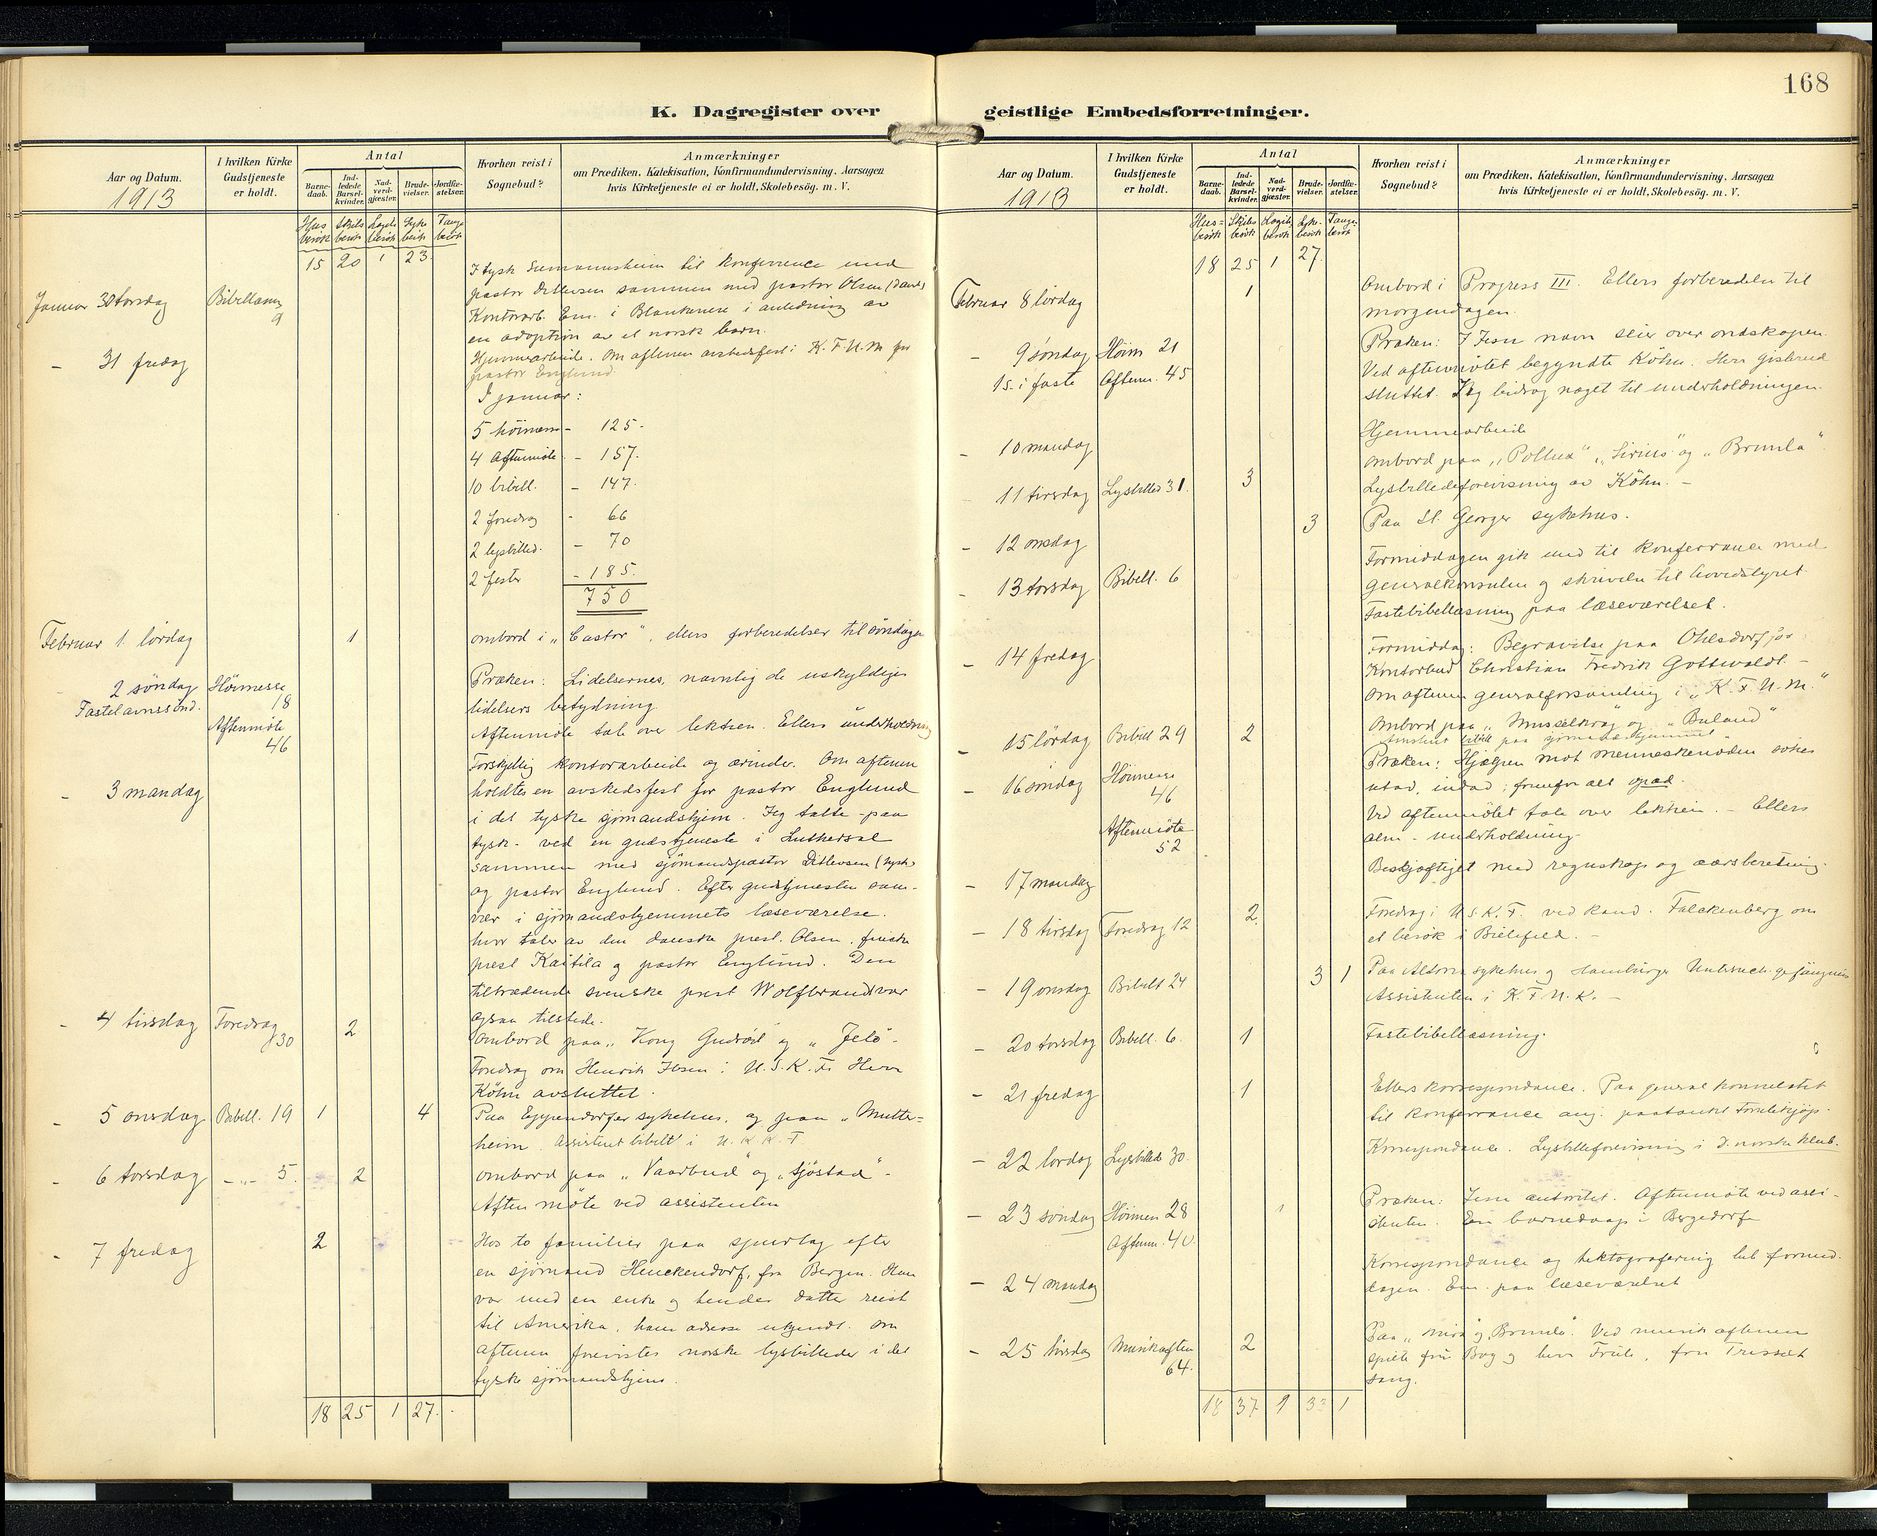 168
K. Dagregister over geistlige Embedsforretninger.
Aar og Datum.
1913
I hvilken Kirke Gudstjeneste er holdt.
Antal
Barnedaab.
Indledede Barselkvinder.
Nadverdgjæster.
Brudevielser.
Jordfæstelser.
Hvorhen reist i Sognebud?
Anmærkninger
om Prædiken, Katekisation, Konfirmandundervisning. Aarsagen
hvis Kirketjeneste ei er holdt, Skolebesög. m. V.
Husbesøk
Skibsbesøk
Logisbesøk
Sykebesøk
Fangebesøk
15 20 1 23
Januar 30 torsdag Bibellæsn. 9
I tysk Seemannsheim til konferrence med
pastor Ditlevsen sammen med pastor Olsen (Dansk)
Kontorarb. Em. i Blankenese i anledning av
en adoption av et norsk barn.
- 31 fredag
Hjemmearbeide. Om aftenen avskedsfest i K.F.U.M. for
pastor Englund.
I januar:
5 höimesse - 125.
4 Aftenmöte - 157.
10 bibell. - 147.
2 foredrag - 66
2 lysbilled. - 70
2 fester - 185.
750
Februar 1. lørdag 1
ombord i „Castor", ellers forberedelser til söndagen
2 söndag Höimesse 18
Fastelavnssönd.
Aftenmöte 46
Præken: Lidelsernes, navnlig de uskyldiges
lidelsers betydning
Aftenmöte tale over leksen. Ellers underholdning
- 3 mandag
Forskjellig kontorarbeide og ærinder. Om aftenen
holdtes en avskedsfest for pastor Englund
i det tyske sjömandshjem. Jeg talte paa
tysk - ved en gudstjeneste i Luthersal
sammen med sjömandspastor Ditlevsen (tysk)
og pastor Englund. Efter gudstjenesten sam-
vær i sjömandshjemmets læseværelse.
hvor taler av den danske prest. Olsen, finske
prest Kaitila og pastor Englund. Den
tiltrædende svenske prest Wolfbrand var
ogsaa tilstede.
- 4 tirsdag Foredrag 30 2
Ombord paa „Kong Gudröd" og „Jelö".
Foredrag om Henrik Ibsen i U.S.K.F. Herr
Köhn avsluttet.
- 5 onsdag Bibell. 19 1 4
Paa Eppendorfer sykehus, og paa „Mutter-
heim. Assistent bibell. i U.K.K.F.
- 6 torsdag -„- 5. 2
ombord paa „Vaarbud" og „Sjöstad".
Aftenmöte ved assistenten
- 7 fredag 2
Hos to familier paa spurlag efter
en sjömand Henckendorf, fra Bergen. Han
var med en enke og hendes datter reist
til Amerika, hans adresse ukjendt. Om
aftenen forevistes norske lysbilleder i det
tyske sjömandshjem.
18 25 1 27.
Aar og Datum.
1913
I hvilken Kirke Gudstjeneste er holdt.
Antal
Barnedaab.
Indledede Barselkvinder.
Nadverdgjæster.
Brudevielser.
Jordfæstelser.
Hvorhen reist i Sognebud?
Anmærkninger
om Prædiken, Katekisation, Konfirmandundervisning. Aarsagen
hvis Kirketjeneste ei er holdt, Skolebesög. m. V.
Husbesøk
Skibsbesøk
Logisbesøk
Sykebesøk
Fangebesøk
18 25 1 27.
Februar 8 lørdag 1
Ombord i Progress III. Ellers forberedelse til
morgendagen.
- 9 söndag Höim 21
1 S. i faste Aftenm. 45
Præken: I Jesu navn seier over ondskapen.
Ved aftenmötet begyndte Köhn. Herr
sluttet. Jeg bidrog noget til underholdningen.
- 10 mandag
Hjemmearbeide
- 11 tirsdag Lysbilled 31. 3
ombord paa „Pollux" „Sirius" og „Brunla".
Lysbilledeforevisning av Köhn. -
- 12 onsdag 3
Paa St. Georger sykehus.
- 13 torsdag Bibell. 6
Formiddagen gik med til konferrance med
generalkonsulen og skrivelse til hovedstyret
Fastebibellæsning paa læseværelset.
- 14 fredag
Formiddag: Begravelse paa Ohlsdorf for
Kontorbud Christian Fredrik Gottwaldt. -
Om aftenen generalforsamling i „K.F.U.M."
- 15 lørdag Bibell 29 2
Ombord paa „Musselkrag" og „Buland"
Assistent bibell. paa sjömandshjemmet
- 16 söndag Höimesse 46
Aftenmöte 52
Præken: Hjælpen mot menneskenöden sökes
utad, indad, fremfor alt opad.
Ved aftenmötet tale over lektien. - Ellers
alm. underholdning.
- 17 mandag
Beskjæftiget med regnskap og aarsberetning.
- 18 tirsdag Foredrag 12 2
Foredrag i U.S.K.F. ved kand. Falckenberg om
et besök i Bielefeld. -
- 19 onsdag Bibell 24 3 1
Paa Altona sykehus og Hamburger Untersuch.gefängnis
Assistenten i K.F.U.K. -
- 20 torsdag Bibell. 6. 1
Fastebibellæsning.
- 21 fredag 1
Ellers korrespondance. Paa generalkonsulatet
til konferrance ang. paatænkt
- 22 lørdag Lysbilled 30.
Korrespondance. Lysbilleforevisning i d. norske klub.
- 23 söndag Höimes 28 1
Aftenm. 40.
Præken: Jesu autoritet. Aftenmöte ved assi-
stenten. En barnedaap i Bergedorf
- 24 mandag
Korrespondance og hektografering hele formid-
dagen. Em. paa læseværelset
- 25 tirsdag Musikaften 64. 2
Paa „Mira" og „Brunla". Ved musikaftenen
spilte frk. Bog og herr Früh, frk
sang.
18 37 1 33 1